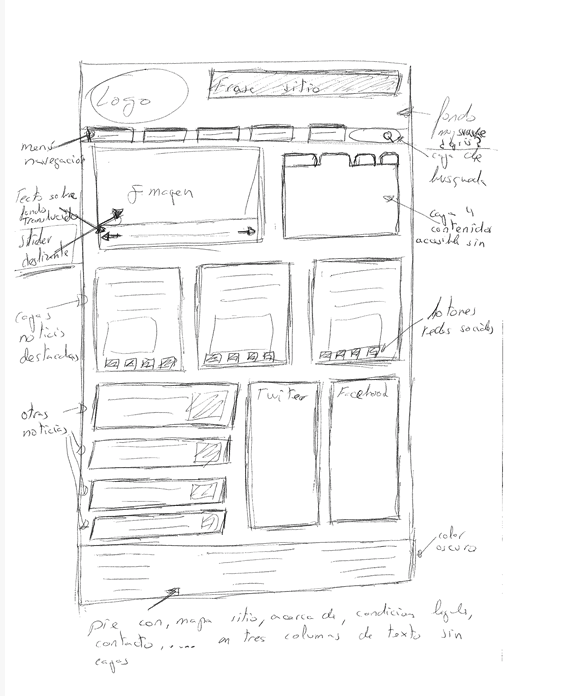 Logo
Frase sitio
fondo
muy suave
¿gris?
menú
navegación
caja de
busqueda
Imagen
Texto sobre
fondo
translucido
slider
deslizante
caja 4
contenidos
accesible sin
cajas
noticis
destacadas
botones
redes sociales
otras
noticias
Twitter
Facebook
color
oscuro
pie con, mapa sitio, acerca de, condicion legale,
contacto, ..... en tres columas de texto sin
cajas